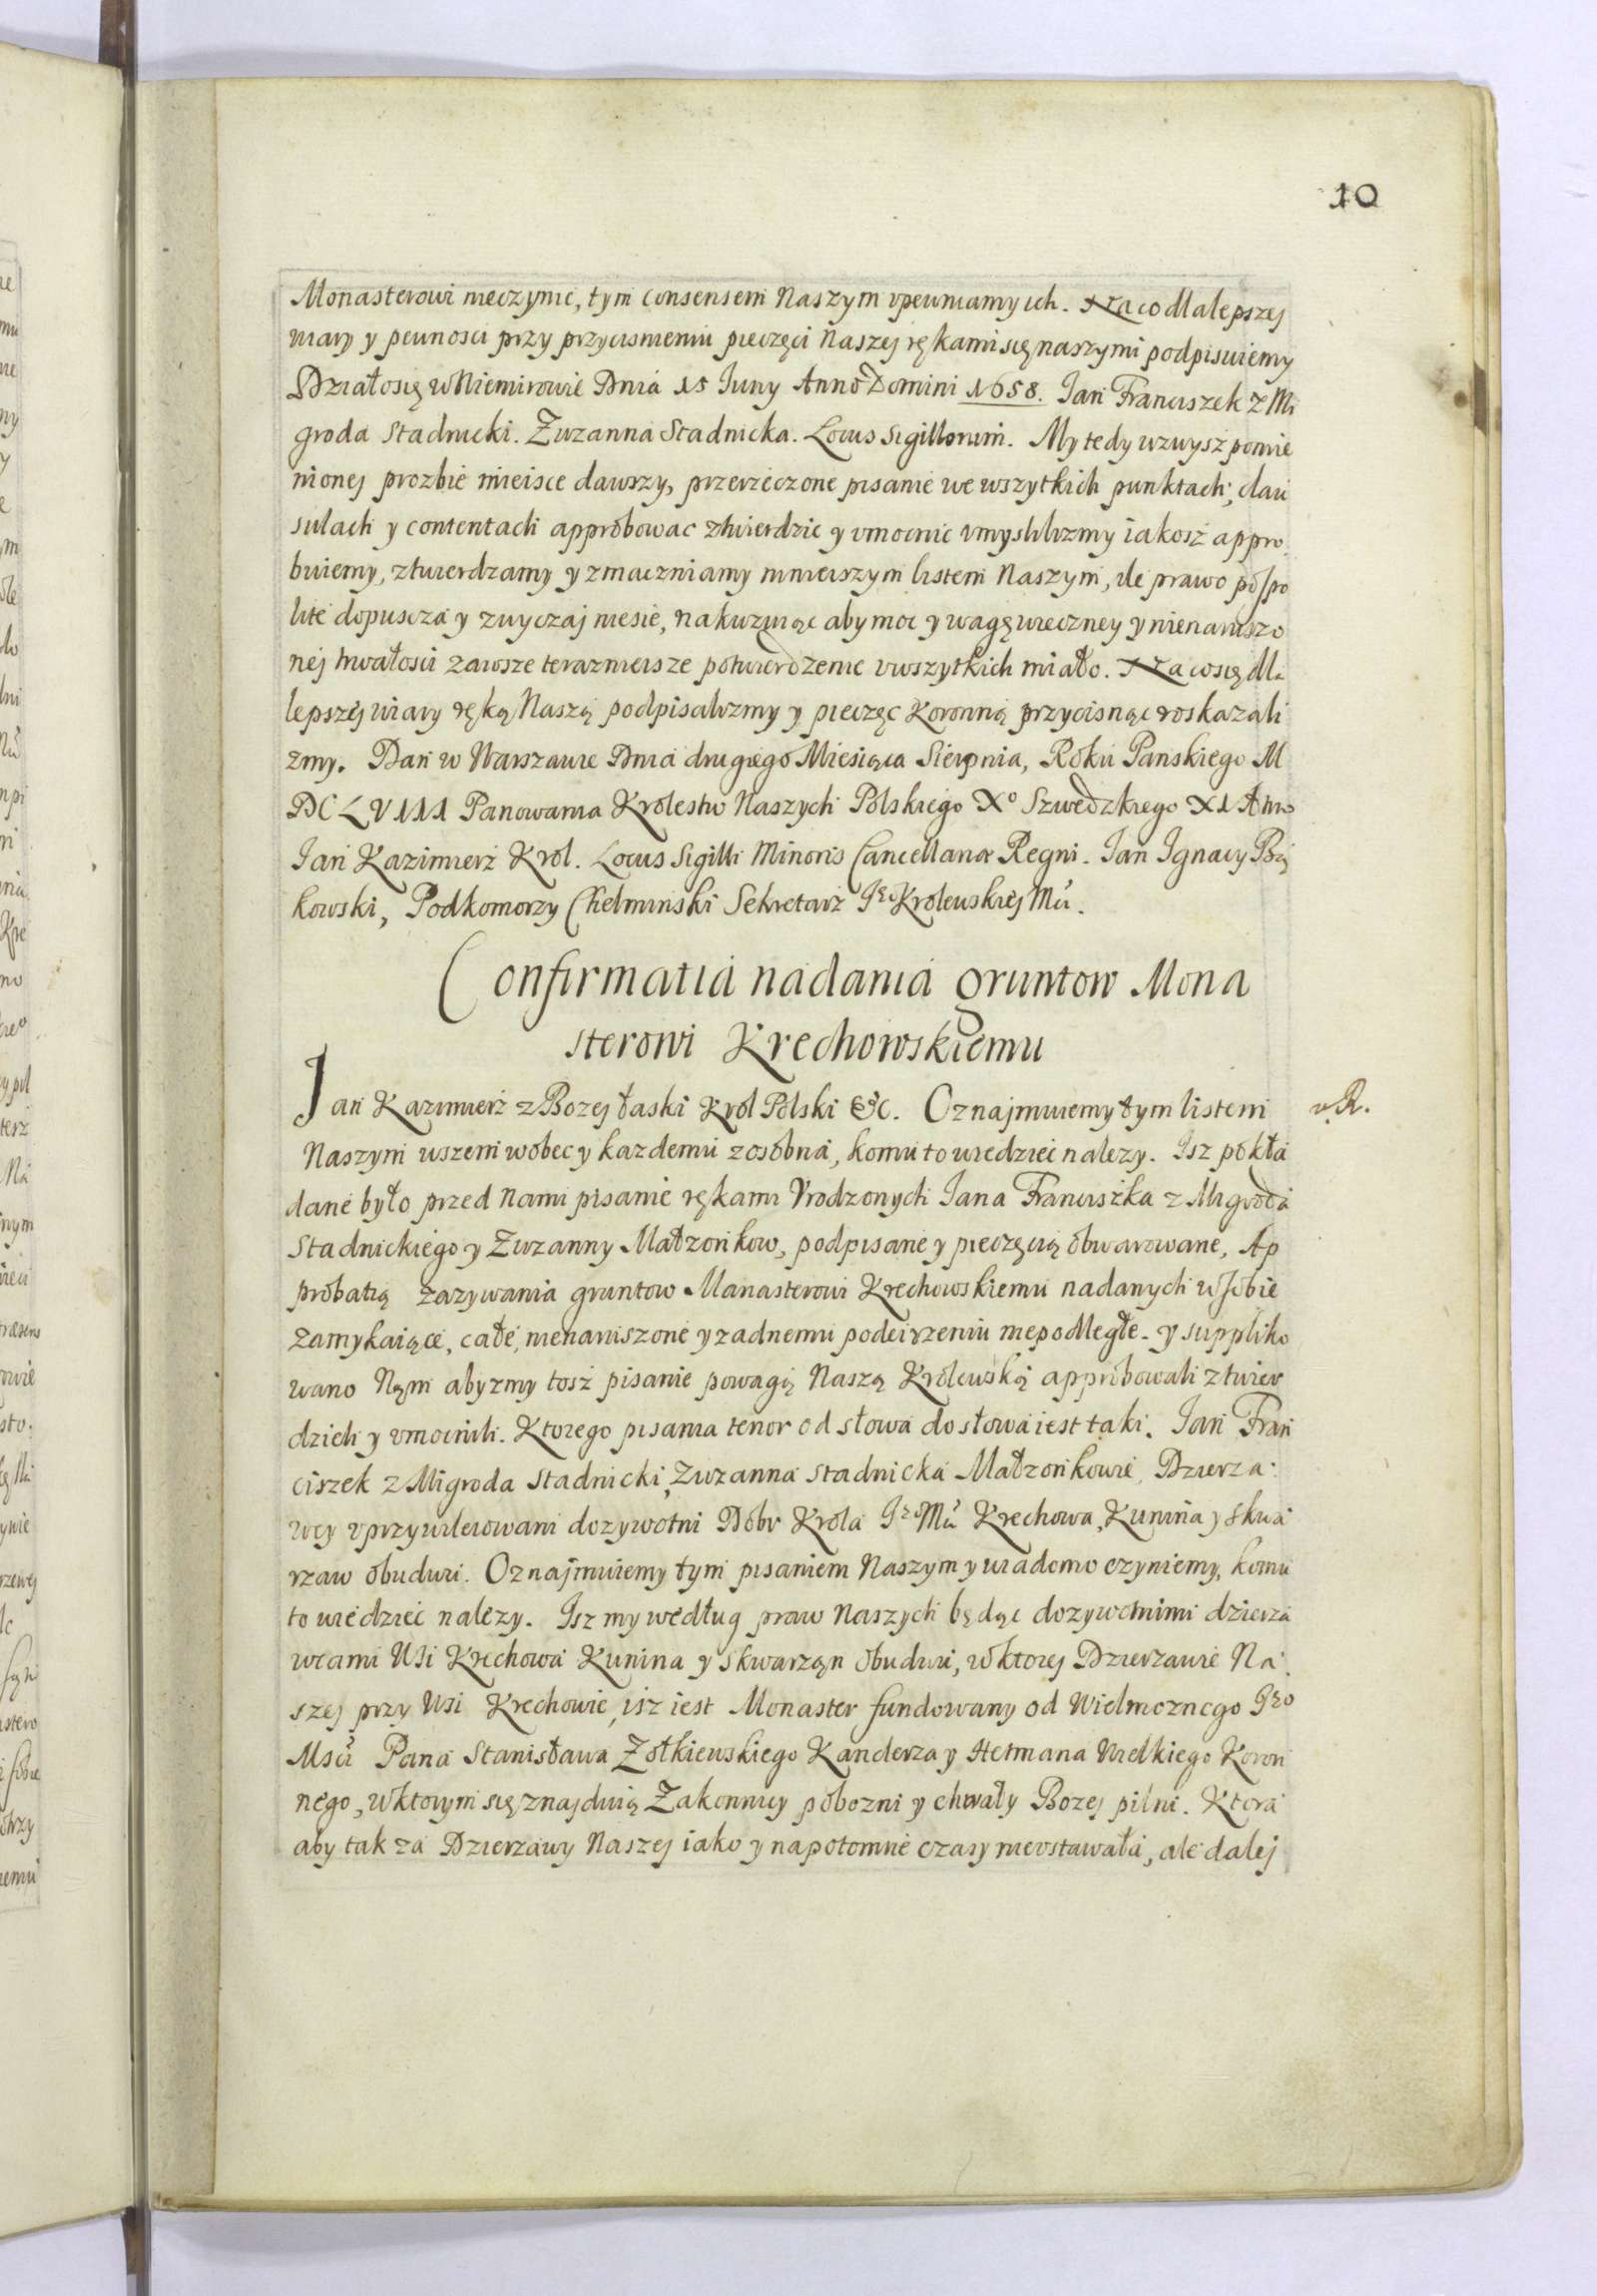 10
Monasterowi nieczynic, tym consensem Naszym upewniamy ich. Na co dla lepszej
wiary y pewnosci przy przycisnieniu pieczęci Naszej rękami się naszymi podpisuiemy
Działo się w Niemirowie Dnia 15 Iuny Anno Domini 1658. Ian Franciszek z Mi
groda Stadnicki. Zuzanna Stadnicka. Locus Sigillorum. My tedy wzwysz pomie
nionej prozbie mieisce dawszy, przerzeczone pisanie we wszytkich punktach, clau
sulach y contentach approbowac ztwierdzic y vmocnic vmyslilizmy iakosz appro
buiemy, ztwierdzamy y zmaczniamy ninieiszym listem Naszym, ile prawo pospo
lite dopuscza y zwyczaj niesie, nakuzuiąc aby moc y wagę wieczney y nienaruszo
nej trwałosci zawsze teraznieisze potwierdzenie v wszytkich miało. Na co się dla
lepszej wiary ręką Naszą podpisalizmy y pieczęc Koronną przycisnąc roskazali
zmy. Dan w Warszawie Dnia drugiego Miesiąca Sierpnia, Roku Panskiego M
DC LVIII Panowania Krolestw Naszych Polskiego Xº Szwedzkiego XI
Ian Kazimierz Krol. Locus Sigilli Minoris Cancellariæ Regni. Ian Ignacy Bą
kowski, Podkomorzy Chelminski Sekretarz Jº Krolewskiej Mci.
Confirmatia nadania gruntow Mona
sterowi Krechowskiemu
Ian Kazimierz z Bozej łaski Krol Polski &c. Oznajmuiemy tym listem
Naszym wszem wobec y kazdemu zosobna, komu to wiedziec nalezy. Isz pokła
dane było przed Nami pisanie rękami Vrodzonych Iana Franciszka z Migroda
Stadnickiego y Zuzanny Małzonkow, podpisane y pieczęcią obwarowane, Ap
probatią zazywania gruntow Manasterowi Krechowskiemu nadanych w sobie
zamykaiące, całe, nienaruszone y zadnemu podeirzeniu niepodległe. y suppliko
wano Nąm abyzmy tosz pisanie powagą Naszą Krolewską approbowali ztwier
dzieli y vmocnili. Ktorego pisania tenor od słowa do słowa iest taki. Ian Fran
ciszek z Migroda Stadnicki, Zuzanna Stadnicka Małzonkowie, Dzierza
wcy vprzywileiowani dozywotni Dobr Krola Jº Mci Krechowa, Kunina y Skwa
rzaw obudwu. Oznajmuiemy tym pisaniem Naszym y wiadomo czyniemy, komu
to wiedziec nalezy. Isz my według praw Naszych będąc dozywotnimi dzierza
wcami Wsi Krechowa Kunina y Skwarząn obudwu, w ktorej Dzierzawie Na
szej przy Wsi Krechowie, isz iest Monaster fundowany od Wielmoznego Jºº
Msci Pana Stanisława Zołkiewskiego Kanclerza y Hetmana Wielkiego Koron
nego, w ktorym się znajduią Zakonnicy pobozni y chwały Bozej pilni. Ktora
aby tak za Dzierzawy Naszej iako y napotomnie czasy nieustawała, ale dalej